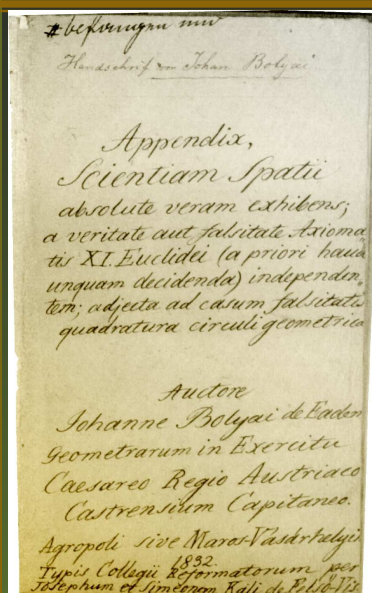 Handschrif von Johan Bolyai
Appendix,
Scientiam Spatii
absolute veram exhibens;
a veritate aut falsitate Axioma
tis XI. Euclidei (a priori haud
unquam decidenda) independen„
tem; adjecta ad casum falsitatis
quadratura circuli geometrica
Auctore
Johanne Bolyai de Eadem
Geometrarum in Exercitu
Caesareo Regio Austriaco
Castrensium Capitaneo.
Agropoli sive Maros-Vásárhelyin
1832.
Typis Collegii Reformatorum per
Josephum et Simeonem Kali de Felső-Vis